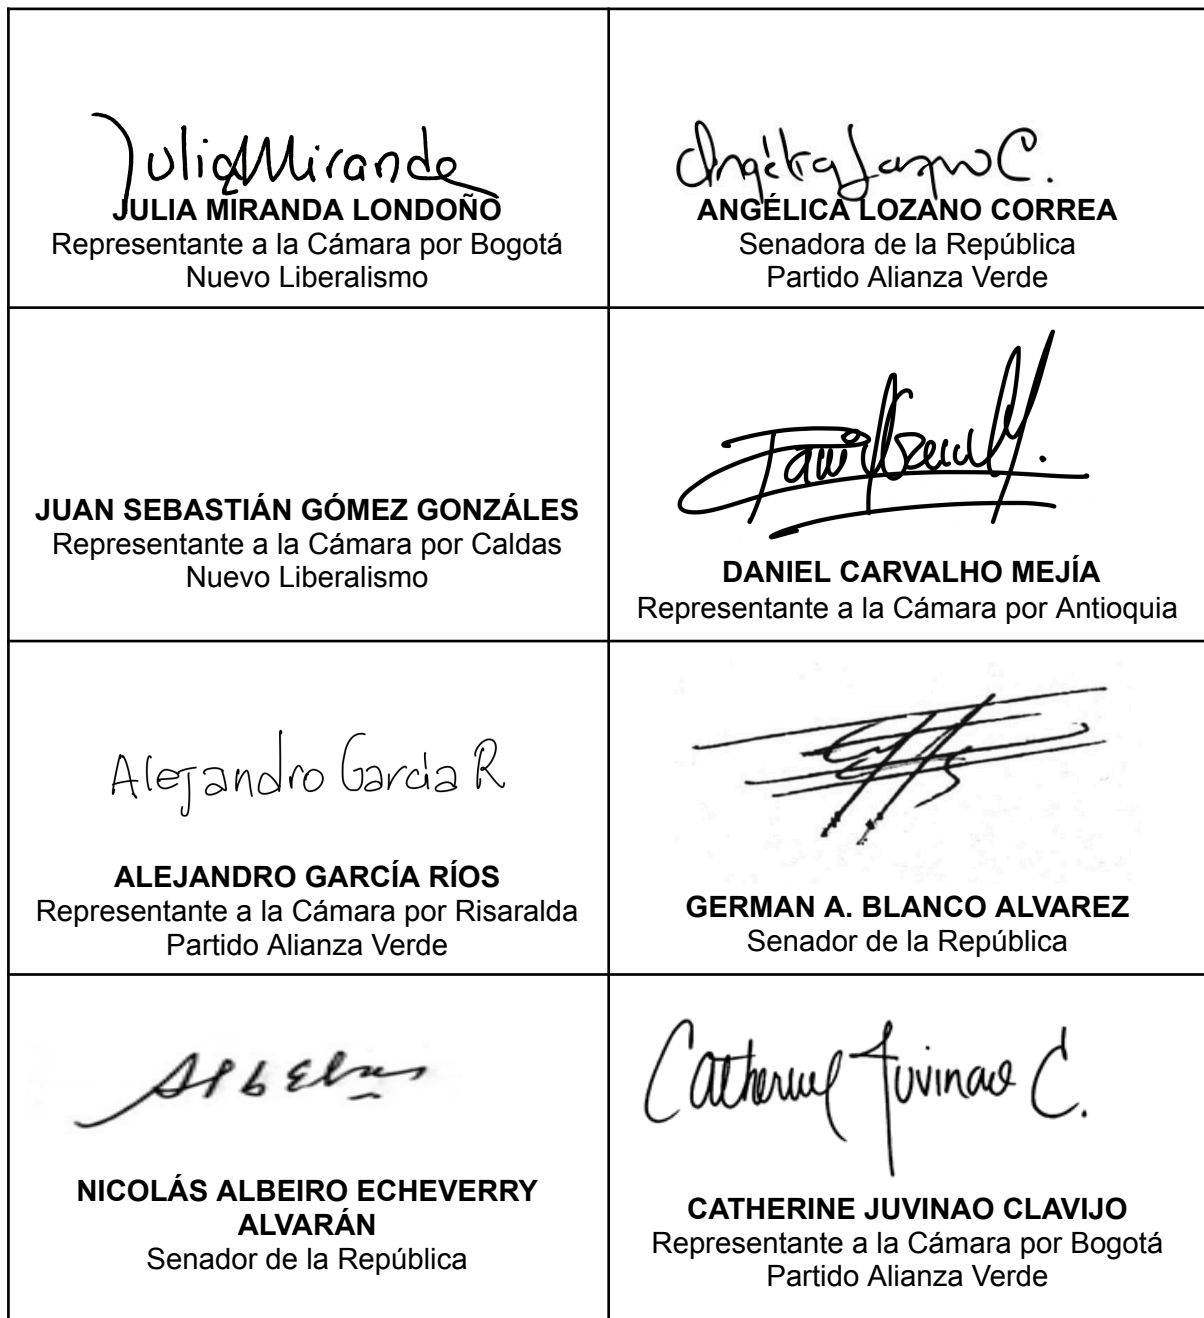 Julia Miranda
JULIA MIRANDA LONDOÑO
Representante a la Cámara por Bogotá
Nuevo Liberalismo
Angélica Lozano C.
ANGÉLICA LOZANO CORREA
Senadora de la República
Partido Alianza Verde
JUAN SEBASTIÁN GÓMEZ GONZÁLES
Representante a la Cámara por Caldas
Nuevo Liberalismo
DANIEL CARVALHO MEJÍA
Representante a la Cámara por Antioquia
Alejandro García R
ALEJANDRO GARCÍA RÍOS
Representante a la Cámara por Risaralda
Partido Alianza Verde
GERMAN A. BLANCO ALVAREZ
Senador de la República
NICOLÁS ALBEIRO ECHEVERRY
ALVARÁN
Senador de la República
Catherine Juvinao C.
CATHERINE JUVINAO CLAVIJO
Representante a la Cámara por Bogotá
Partido Alianza Verde